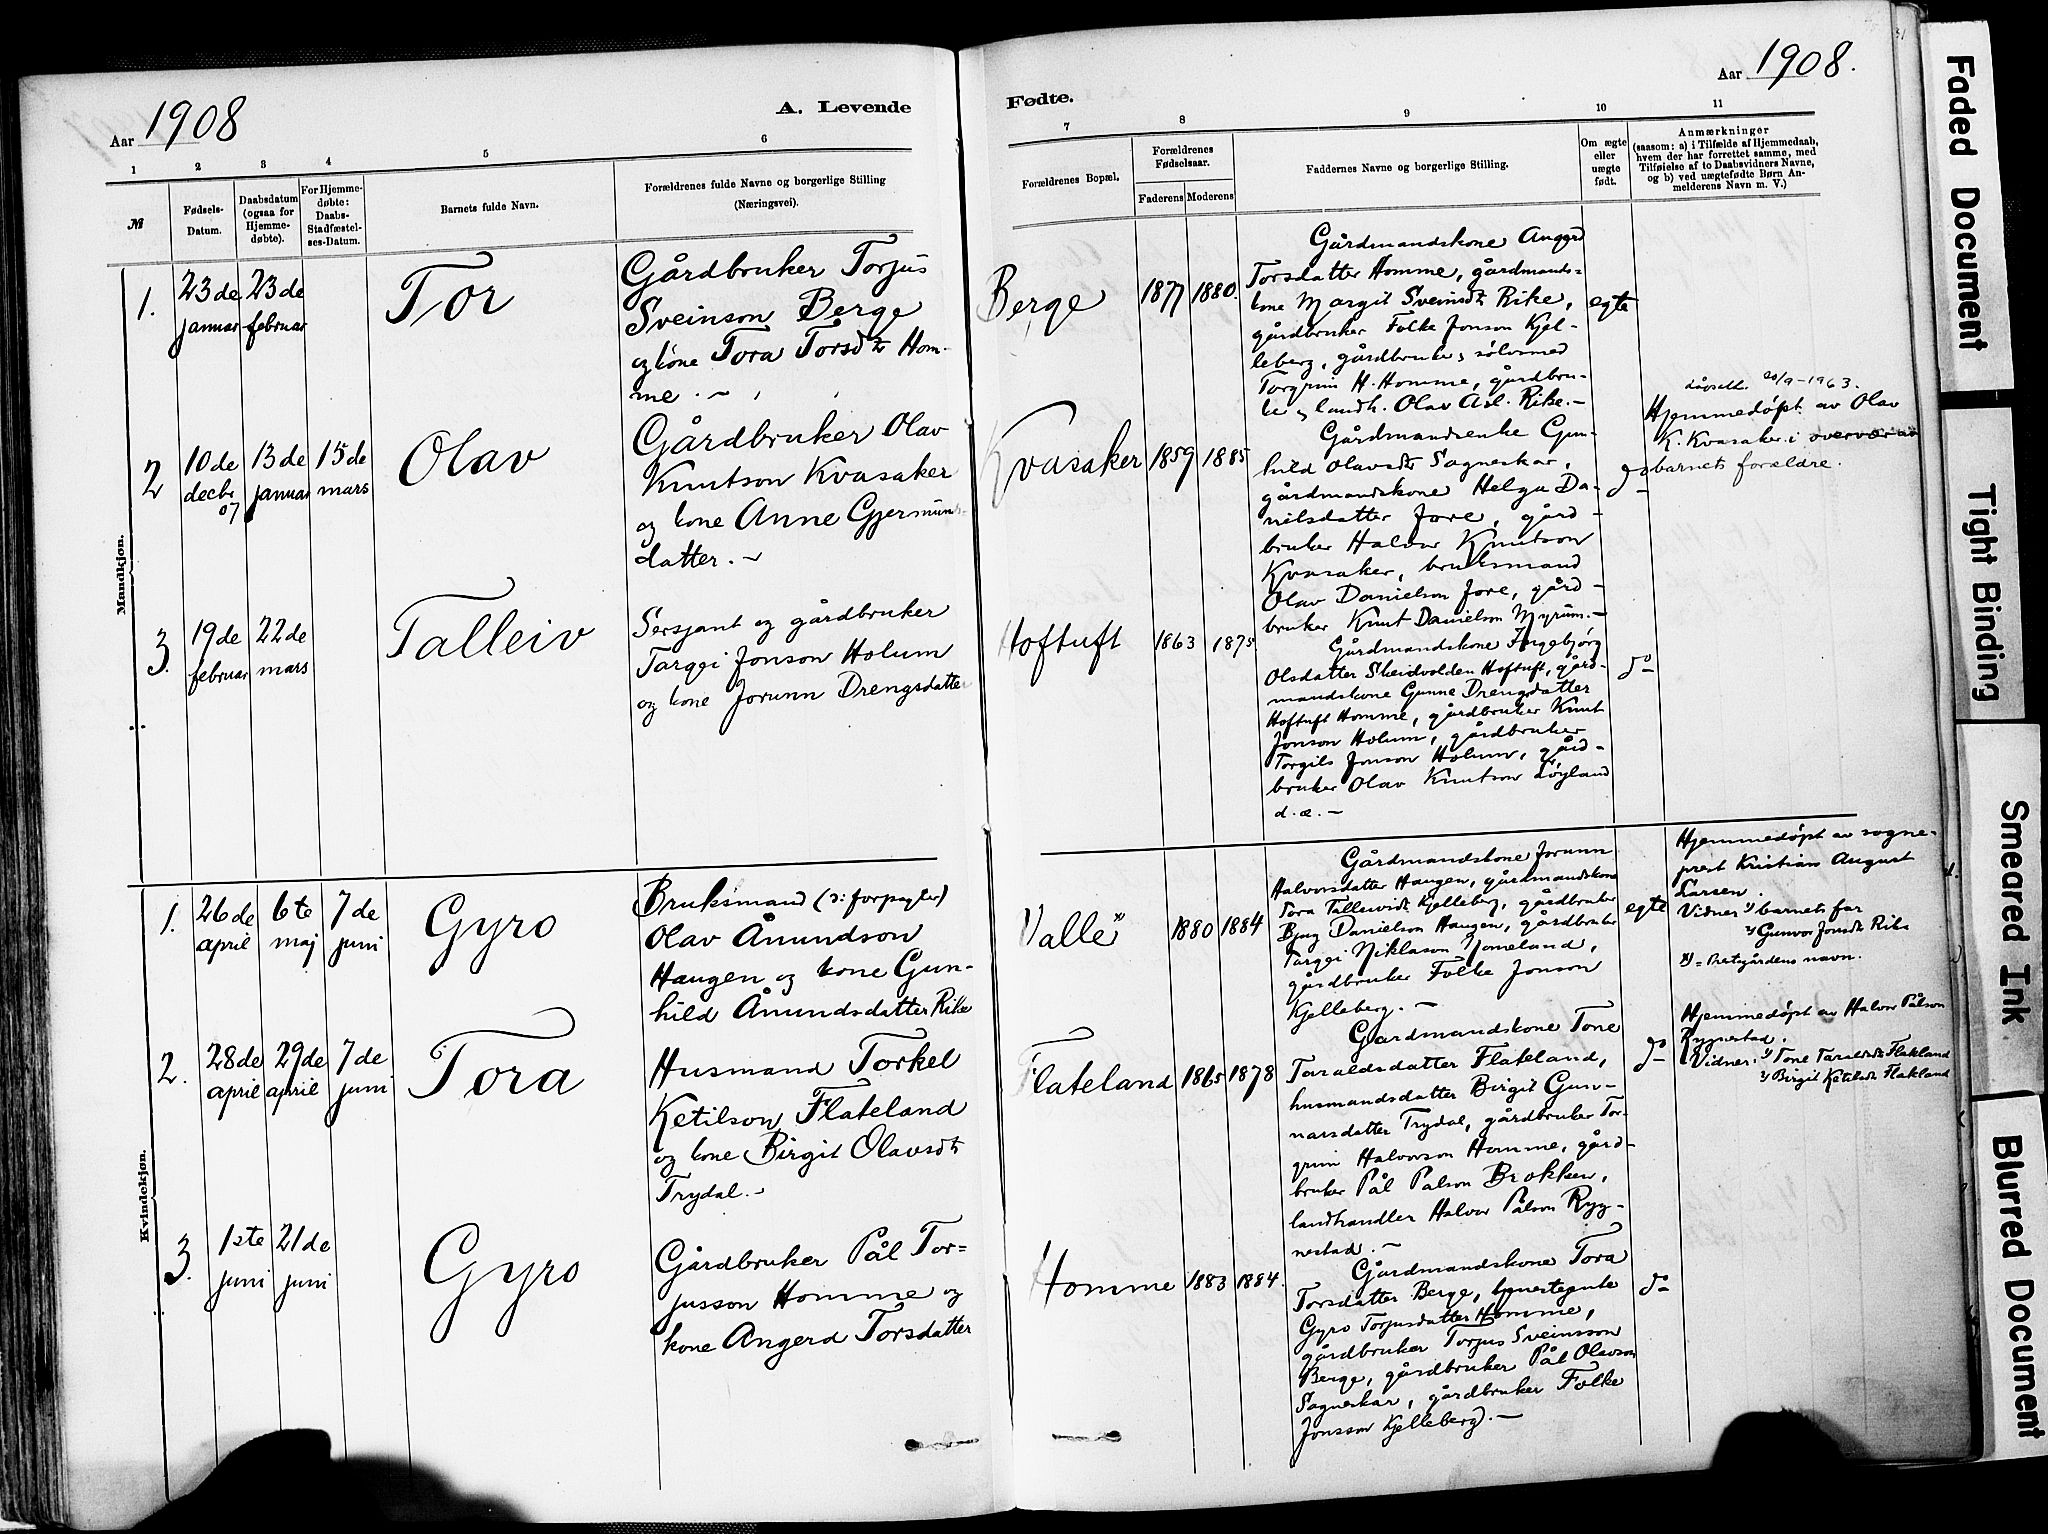 Aar 1908
A. Levende
1
2
3
4
5
6
№
Fødsels-
Datum.
Daabsdatum
(ogsaa for
Hjemme-
døbte).
For Hjemme-
døbte:
Daabs-
Stadfæstel-
ses-Datum.
Barnets fulde Navn.
Forældrenes fulde Navne og borgerlige Stilling
(Næringsvei).
Mandkjøn.
1.
23de
januar
23de
februar
Tor
Gårdbruker Torjus
Sveinson Berge
og kone Tora Torsdtr Hom-
me. -
2
10de
decbr
07
13de
januar
15de
mars
Olav
Gårdbruker Olav
Knutson Kvasaker
og kone Anne Gjermunds-
datter. -
3.
19de
februar
22de
mars
Talleiv
Sersjant og gårdbruker
Targei Jonson Holum
og kone Jorunn Drengsdatter
Kvindekjøn.
1.
26de
april
6te
maj
7de
juni
Gyro
Bruksmand (ɔ: forpagter)
Olav Åmundson
Haugen og kone Gun-
hild Åmundsdatter Rike
2.
28de
april
29de
april
7de
juni
Tora
Husmand Torkel
Ketilson Flateland
og kone Birgit Olavsdtr
Trydal. -
3.
1ste
juni
21de
juni
Gyro
Gårdbruker Pål Tor=
jusson Homme og
kone Angerd Torsdatter
Fødte.
Aar 1908.
7
8
9
10
11
Forældrenes Bopæl.
Forældrenes
Fødselsaar.
Faderens
Moderens
Faddernes Navne og borgerlige Stilling.
Om ægte
eller
uægte
født.
Anmærkninger
(saasom: a) i Tilfælde af Hjemmedaab,
hvem der har forrettet samme, med
Tilføielse af to Daabsvidners Navne,
og b) ved uægtefødte Børn An-
melderens Navn m. V.)
Berge
1877
1880.
Gårdmandskone Anggerd
Torsdatter Homme, gårdmands=
kone Margit Sveinsdtr Rike,
gårdbruker Folke Jonson Kjel-
leberg, gårdbruker, sølvsmed
Torgrim H. Homme, gårdbru-
ker og landh. Olav Asl. Rike. -
egte
Kvasaker
1859
1885
Gårdmandsenke Gun-
hild Olavsdtr Sagneskar,
gårdmandskone Helga Da-
nilsdatter Jore, gård-
bruker Halvor Knutson
Kvasaker, bruksmand
Olav Danielson Jore, gård-
bruker Knut Danielson Myrum. -
do
20/9-1963.
Hjemmedøpt av Olav
K. Kvasaker i overvær av
barnets forældre.
Hoftuft
1863
1875
Gårdmandskone Ingebjørg
Olsdatter Skeidvolden Hoftuft, gård-
mandskone Gunne Drengsdatter
Hoftuft Homme, gårdbruker Knut
Jonson Holum, gårdbruker
Torgils Jonson Holum, gård-
bruker Olav Knutson Løyland
d. æ. -
do
Valle"
1880
1884
Gårdmandskone Jorunn
Halvorsdatter Haugen, gårdmandskone
Tora Tallevsdtr Kjelleberg, gårdbruker
Bjug Danielson Haugen, gårdbruker
Targei Niklason Nomeland,
gårdbruker Folke Jonson
Kjelleberg. -
egte
Hjemmedøpt av sogne-
prest Kristian August
Larsen.
Vidner 1) barnets far
2) Gunvor Jonsdtr Rike
= Prestgårdens navn.
Flateland
1865
1878
Gårdmandskone Tone
Taraldsdatter Flateland,
husmandsdatter Birgit Gun-
narsdatter Trydal, gårdbruker Tor-
grim Halvorson Homme, gård-
bruker Pål Palson Brokken,
landhandler Halvor Pålson Ryg-
nestad. -
do
Hjemmedøpt av Halvor Pålson
Rygnestad.
Vidner: 1) Tone Taraldsdtr Flateland
2) Birgit Ketilsdtr Flateland
Homme
1883
1884.
Gårdmandskone Tora
Torsdatter Berge, tjenestepike
Gyro Torjusdatter Homme,
gårdbruker Torjus Sveinsson
Berge, gårdbruker Pål Olavson
Sagneskar, gårdbruker Folke
Jonsson Kjelleberg. -
do
Faded Document
Tight Binding
Smeared Ink
Blurred Document